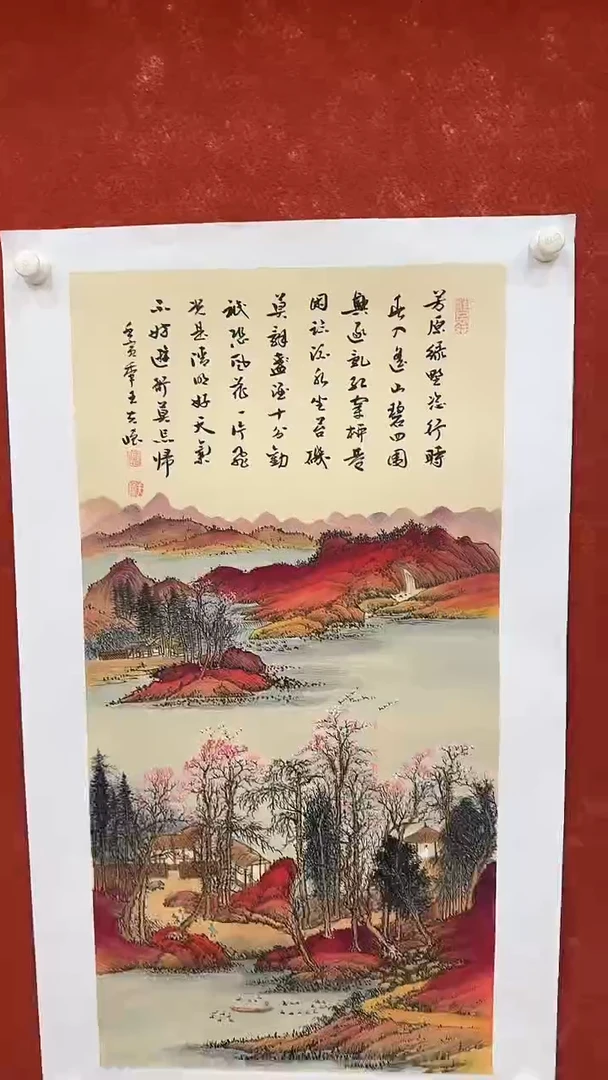 芳原绿野恣行時
春入遙山碧四围
興逐乱红穿柳巷
困临流水坐苔磯
莫辞盏酒十分勸
祗恐風花一片飛
況是清明好天氣
不妨遊衍莫忘歸
壬寅